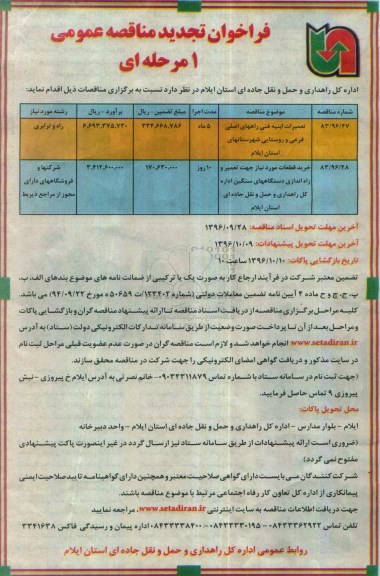 فراخوان تجدید مناقصه عمومی
۱ مرحله ای
اداره کل راهداری و حمل و نقل جاده ای استان ایلام در نظر دارد نسبت به برگزاری مناقصات ذیل اقدام نماید:
شماره مناقصه موضوع مناقصه مدت اجرا مبلغ تضمین - ریال برآورد - ریال رشته مورد نیاز
۸۳/۹۶/۴۷ تعمیرات ابنیه فنی راههای اصلی فرعی و روستایی شهرستانهای استان ایلام ۵ ماه ۳۳۴,۶۶۸,۷۸۶ ۶,۶۹۳,۳۷۵,۷۳۰ راه و ترابری
۸۳/۹۶/۴۸ خرید قطعات مورد نیاز جهت تعمیر و راه اندازی دستگاههای سنگین اداره کل راهداری و حمل و نقل جاده ای استان ایلام ۱۰ روز ۱۷۰,۶۳۰,۰۰۰ ۳,۴۱۲,۶۰۰,۰۰۰ شرکتها و فروشگاههای دارای مجوز از مراجع ذیربط
آخرین مهلت تحویل اسناد مناقصه: ۱۳۹۶/۰۹/۲۸
آخرین مهلت تحویل پیشنهادات: ۱۳۹۶/۱۰/۰۹
تاریخ بازگشایی پاکات: ۱۳۹۶/۱۰/۱۰ ساعت ۱۰
تضمین معتبر شرکت در فرآیند ارجاع کار به صورت یک یا ترکیبی از ضمانت نامه های موضوع بندهای الف، ب،
پ، ج، چ و ح ماده ۴ آیین نامه تضمین معاملات دولتی (شماره ۱۲۳۴۰۲/ت ۵۰۶۵۹ ه مورخ ۹۴/۰۹/۲۲) می باشد.
کلیه مراحل برگزاری مناقصه از دریافت اسناد مناقصه تا ارائه پیشنهاد مناقصه گران و بازگشایی پاکات
و مراحل بعد از آن تا پرداخت صورت وضعیت از طریق سامانه تدارکات الکترونیکی دولت (ستاد) به آدرس
www.setadiran.ir انجام خواهد شد و لازم است مناقصه گران در صورت عدم عضویت قبلی مراحل ثبت نام
در سایت مذکور و دریافت گواهی امضای الکترونیکی را جهت شرکت در مناقصه محقق سازند.
(جهت ثبت نام در سامانه ستاد با شماره تماس ۰۹۰۳۴۳۱۱۸۷۹ - خانم نصرتی به آدرس ایلام خ پیروزی - نبش
پیروزی ۹ تماس حاصل فرمایید.
محل تحویل پاکات:
ایلام - بلوار مدارس - اداره کل راهداری و حمل و نقل جاده ای استان ایلام - واحد دبیرخانه
(ضروری است ارائه پیشنهادات از طریق سامانه ستاد نیز ارسال گردد در غیر اینصورت پاکت پیشنهادی
مفتوح نمی گردد)
شرکت کنندگان می بایست دارای گواهی صلاحیت معتبر و همچنین دارای گواهینامه تایید صلاحیت ایمنی
پیمانکاری از اداره کل تعاون کار رفاه اجتماعی مرتبط با موضوع مناقصه باشند.
جهت دریافت اطلاعات مناقصه به سایت اینترنتی www.setadiran.ir. مراجعه نمایید
تلفن تماس ۰۸۴۳۳۳۶۲۹۲۲ - ۰۸۴۳۳۳۳۰۱۹۵ - ۰۸۴۳۳۳۳۸۴۰۰ اداره پیمان و رسیدگی فاکس ۳۳۴۱۶۳۸
روابط عمومی اداره کل راهداری و حمل و نقل جاده ای استان ایلام